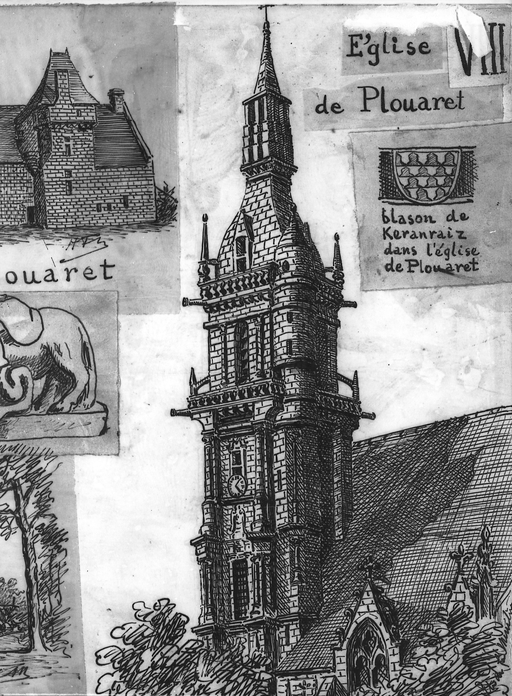 E'glise
VIII
de Plouaret
blason de
Keranraiz
dans l'église
de Plouaret
ouaret